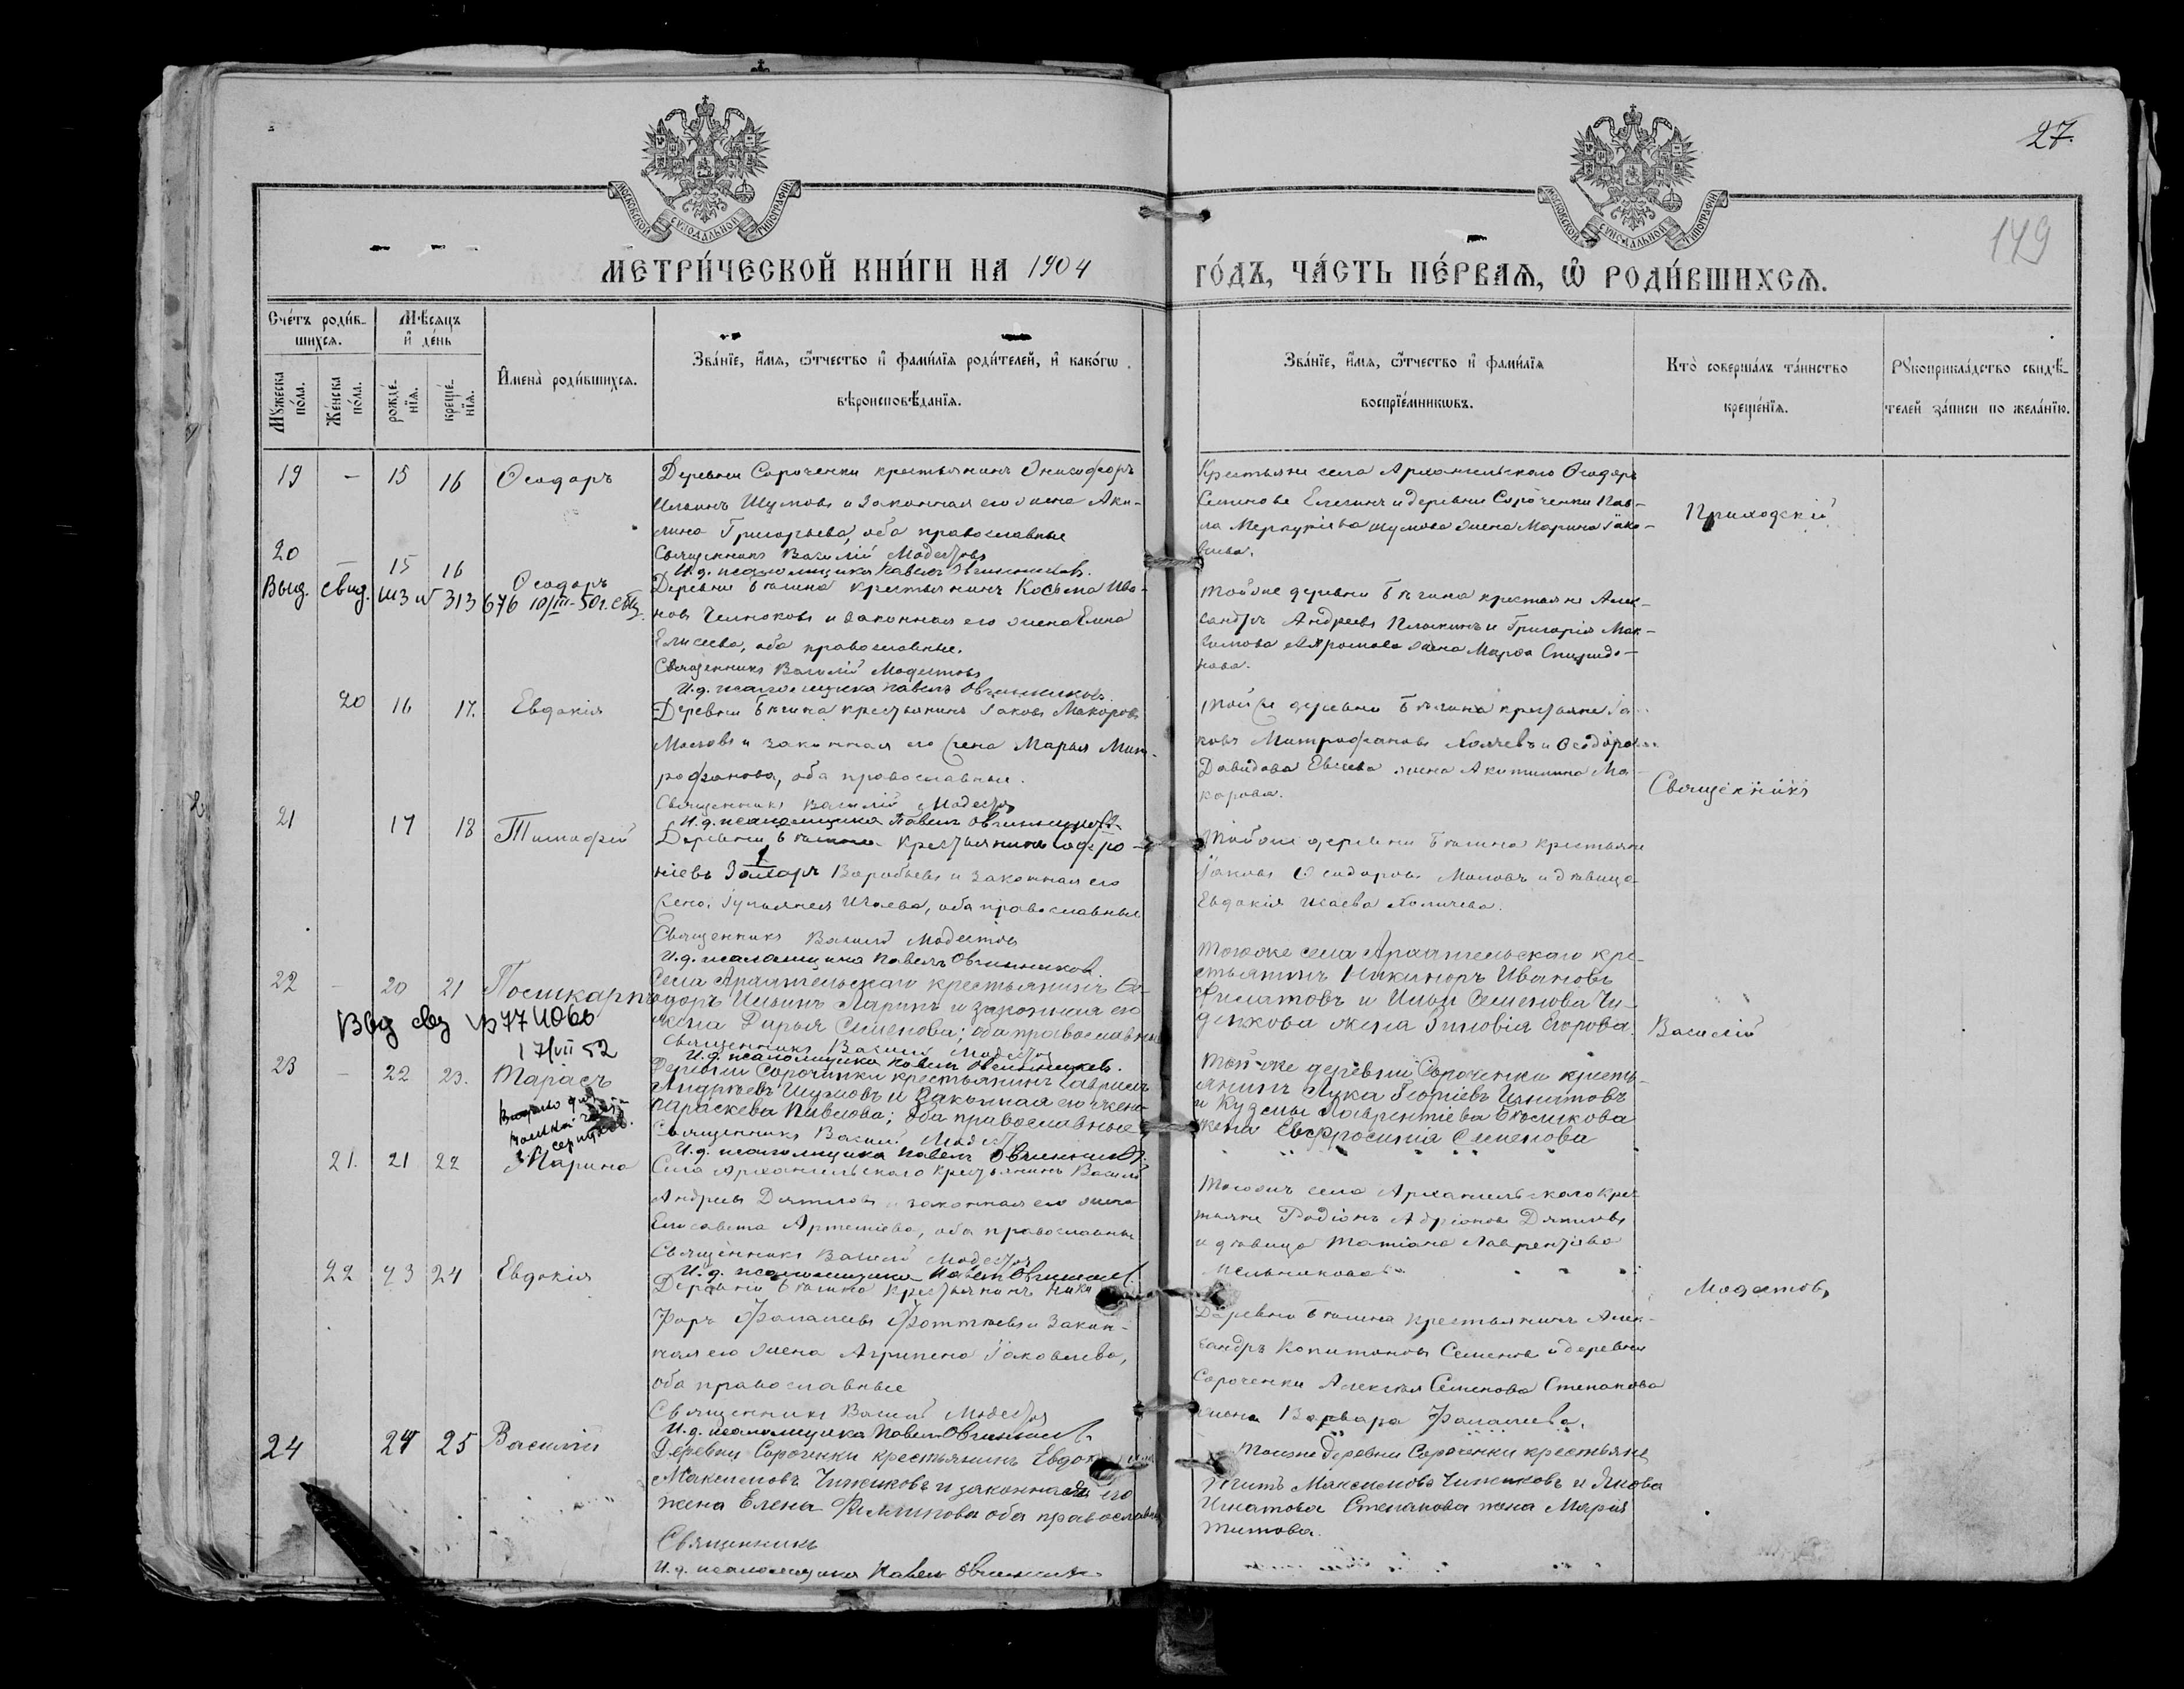 27.
179
МОСКОВСКОЙ СѴНОДАЛЬНОЙ ТИПОГРАФІИ
МОСКОВСКОЙ СѴНОДАЛЬНОЙ ТИПОГРАФІИ
МЕТРИ́ЧЕСКОЙ КНИ́ГИ НА 1904 ГО́ДЪ, ЧА́СТЬ ПЕ́РВАѦ, Ѡ РОДИ́ВШИХСѦ.
Сче́тъ роди́вшихсѧ.
Мѣ́сѧцъ и҆ де́нь
Мꙋ́жеска по́ла.
Же́нска по́ла.
рожде́нїѧ.
креще́нїѧ.
И҆мена̀ роди́вшихсѧ.
Зва́нїе, и҆́мѧ, ѻ҆́тчество и҆ фами́лїѧ роди́телей, и҆ како́гѡ
вѣроисповѣ́данїѧ.
Зва́нїе, и҆́мѧ, ѻ҆́тчество и҆ фами́лїѧ
воспрїе́мникѡвъ.
Кто̀ соверша́лъ та́инство
креще́нїѧ.
Рꙋкоприкла́дство свидѣ́телей за́писи по жела́нїю.
19 - 15 16 Ѳеодоръ
Деревни Сороченки крестьянинъ Онисифоръ
Ильинъ Шумовъ и законная его жена Аки-
лина Григорьева, оба православные
Священникъ Василій Модестовъ
И.д. псаломщика Павелъ Овчинниковъ.
Крестьяне села Архангельскаго Ѳеодоръ
Семеновъ Елезинъ и деревни Сороченки Пав-
ла Меркуріева Шумова жена Марина Іако-
влева.
Приходскій
20 - 15 16 Ѳеодоръ
Выд. свид. 313 676 10/III-50г.
Деревни Бѣгина крестьянинъ Косьма Ива-
новъ Челноковъ и законная его жена Елена
Елисеева, оба православные.
Священникъ Василій Модестовъ
И.д. псаломщика Павелъ Овчинниковъ.
Той же деревни Бѣгина крестьяне Алек-
сандръ Андреевъ и Григорія Мак-
симова жена Марѳа Спиридо-
нова.
20 16 17. Евдокія
Деревни Бѣгина крестьянинъ Іаковъ Макаровъ
и законная его жена Марья Мит-
рофанова, оба православные.
Священникъ Василій Модестовъ
И.д. псаломщика Павелъ Овчинниковъ
Той же деревни Бѣгина крестьяне Іа-
ковъ Митрофановъ и Ѳеодора
Давидова жена Акилина Ма-
карова.
Священникъ
21 17 18 Тимофей
Деревни Бѣгина крестьянинъ
Воробьевъ и законная его
жена Іульянея Исаева, оба православные
Священникъ Василій Модестовъ
И.д. псаломщика Павелъ Овчинниковъ.
Той же деревни Бѣгина крестьяне
Іаковъ Ѳеодоровъ и дѣвица
Евдокія Исаева
22 - 20 21 Поликарпъ
17/VII 52
Села Архангельскаго крестьянинъ Ѳе-
одоръ Ильинъ Ларинъ и законная его
жена Дарья Семенова; оба православные
Священникъ Василій Модестовъ
И.д. псаломщика Павелъ Овчинниковъ.
Того же села Архангельскаго кре-
стьянинъ Никаноръ Ивановъ
Филатовъ и Ильи Семенова
жена Зиновія Егорова.
Василій
23 - 22 23. Тарасъ
Деревни Сорочинки крестьянинъ Гавріилъ
Андреевъ Шумовъ и законная его жена
Параскева Павлова; оба православные
Священникъ Василій Модестовъ
И.д. псаломщика Павелъ Овчинниковъ.
Той же деревни Сороченки кресть-
янинъ Лука Георгіевъ Игнатовъ
и Кузьмы Лаврентіева
жена Евфросинія Семенова
21. 21 22 Марина
Села Архангельскаго крестьянинъ Василій
Андреевъ Дятловъ и законная его жена
Елисавета Артеміева, оба православные
Священникъ Василій Модестовъ
И.д. псаломщика Павелъ Овчинниковъ
Того жъ села Архангельскаго крес-
тьяне Родіонъ Адріановъ Дятловъ
и дѣвица Татіана Лаврентіева
Мельникова
22 23 24 Евдокія
Деревни Бѣгина крестьянинъ Ники-
форъ и закон-
ная его жена Агрипена Іаковлева,
оба православные
Священникъ Василій Модестовъ
И.д. псаломщика Павелъ Овчинниковъ
Деревни Бѣгина крестьянинъ Алек-
сандръ Капитоновъ Семеновъ и деревни
Сороченки Алексѣя Семенова Степанова
жена Варвара
Модестовъ
24 24 25 Василій
Деревни Сороченки крестьянинъ
Максимовъ Чижиковъ и законная его
жена Елена Филиппова оба православные
Священникъ
И.д. псаломщика Павелъ Овчинниковъ
Той же деревни Сороченки крестьяне
Титъ Максимовъ Чижиковъ и Якова
Игнатова Степанова жена Марія
Титова.